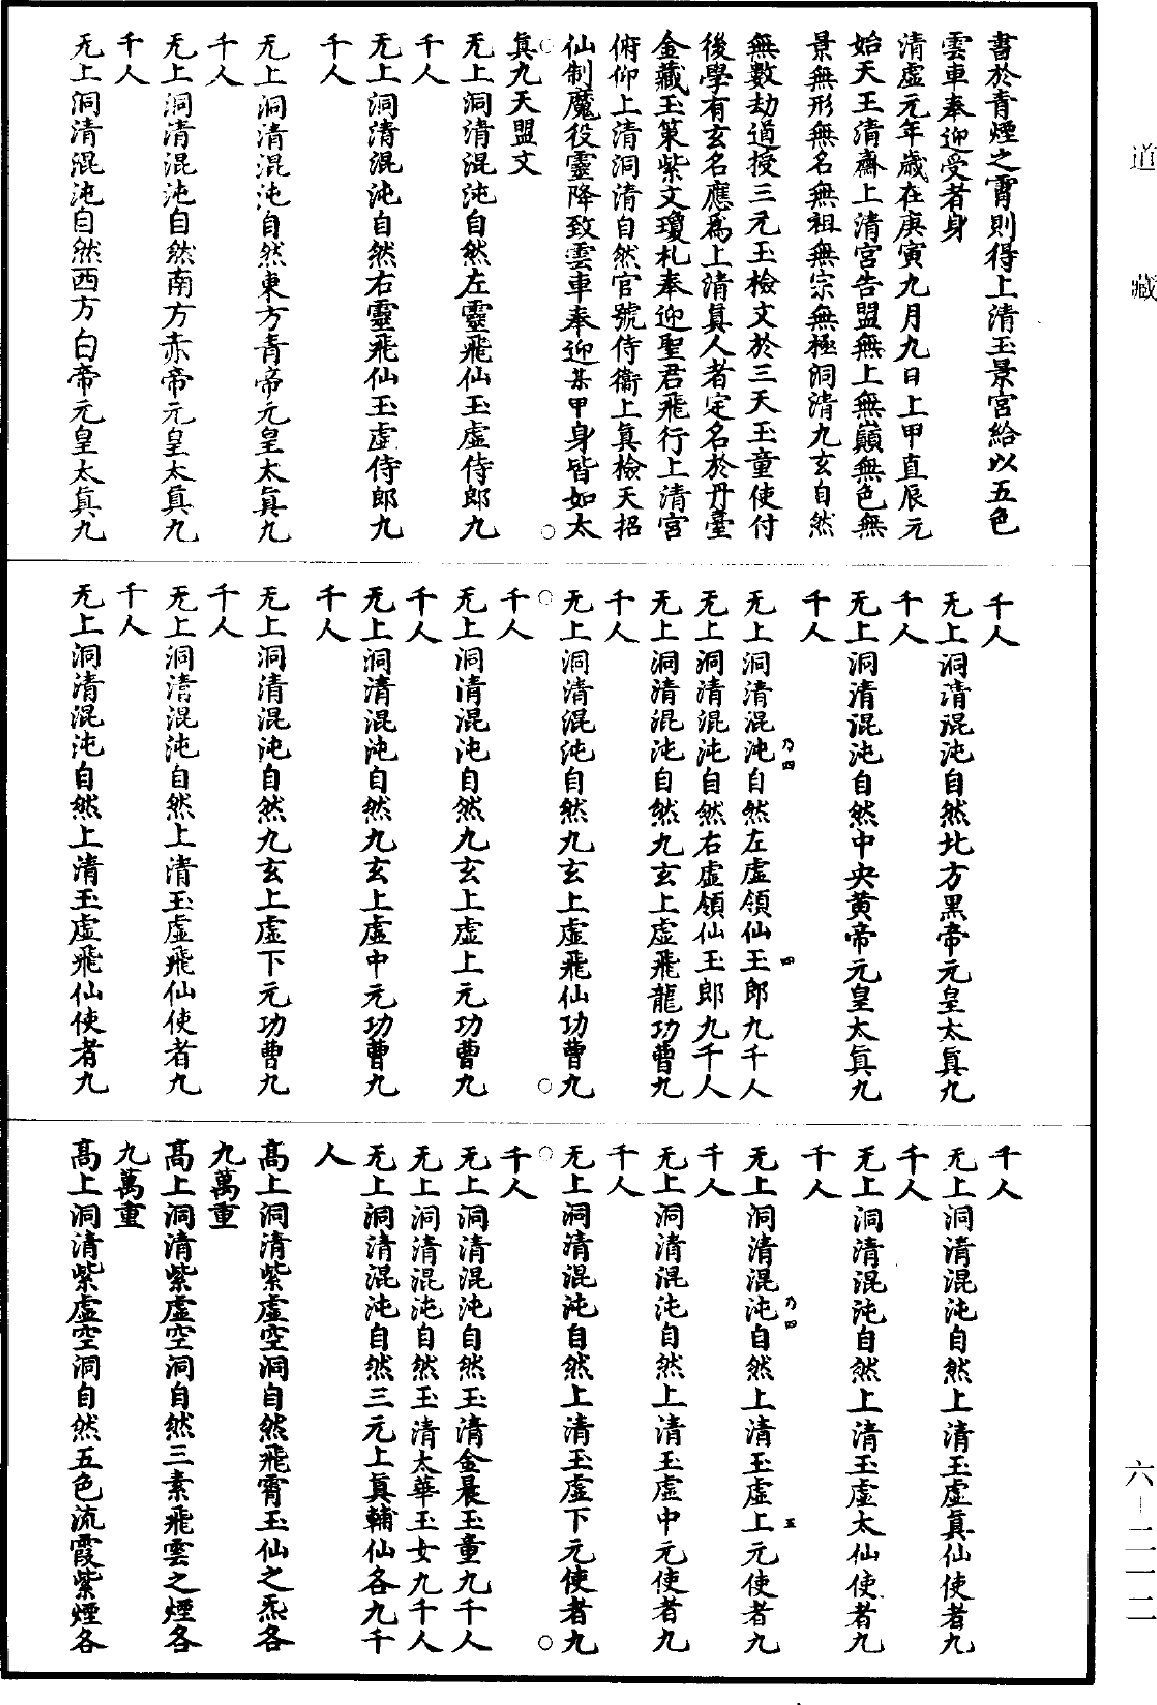 道藏
書於青煙之霄則得上清玉景宮給以五色
雲車奉迎受者身
清虛元年歲在庚寅九月九日上甲直辰元
始天王清齋上清宮告盟無上無巔無色無
景無形無名無祖無宗無極洞清九玄自然
無數劫道授三元玉檢文於三天玉童使付
後學有玄名應爲上清眞人者定名於丹臺
金藏玉箓紫文瓊札奉迎聖君飛行上清宮
俯仰上清洞清自然官號侍衞上眞檢天招
仙制魔役靈降致雲車奉迎某甲身皆如太
眞九天盟文
无上洞清混沌自然左靈飛仙玉虛侍郎九
千人
无上洞清混沌自然右靈飛仙玉虛侍郎九
千人
无上洞清混沌自然東方青帝元皇太眞九
千人
无上洞清混沌自然南方赤帝元皇太眞九
千人
无上洞清混沌自然西方白帝元皇太眞九
千人
无上洞清混沌自然北方黑帝元皇太眞九
千人
无上洞清混沌自然中央黄帝元皇太眞九
千人
乃四 四
无上洞清混沌自然左虛領仙玉郎九千人
无上洞清混沌自然右虛領仙玉郎九千人
无上洞清混沌自然九玄上虛飛龍功曹九
千人
无上洞清混沌自然九玄上虛飛仙功曹九
千人
无上洞清混沌自然九玄上虛上元功曹九
千人
无上洞清混沌自然九玄上虛中元功曹九
千人
无上洞清混沌自然九玄上虛下元功曹九
千人
无上洞清混沌自然上清玉虛飛仙使者九
千人
无上洞清混沌自然上清玉虛飛仙使者九
千人
无上洞清混沌自然上清玉虛眞仙使者九
千人
无上洞清混沌自然上清玉虛太仙使者九
千人
乃四 五
无上洞清混沌自然上清玉虛上元使者九
千人
无上洞清混沌自然上清玉虛中元使者九
千人
无上洞清混沌自然上清玉虛下元使者九
千人
无上洞清混沌自然玉清金晨玉童九千人
无上洞清混沌自然玉清太華玉女九千人
无上洞清混沌自然三元上眞輔仙各九千
人
高上洞清紫虛空洞自然飛霄玉仙之炁各
九萬重
高上洞清紫虛空洞自然三素飛雲之煙各
九萬重
高上洞清紫虛空洞自然五色流霞紫煙各
六－二一二